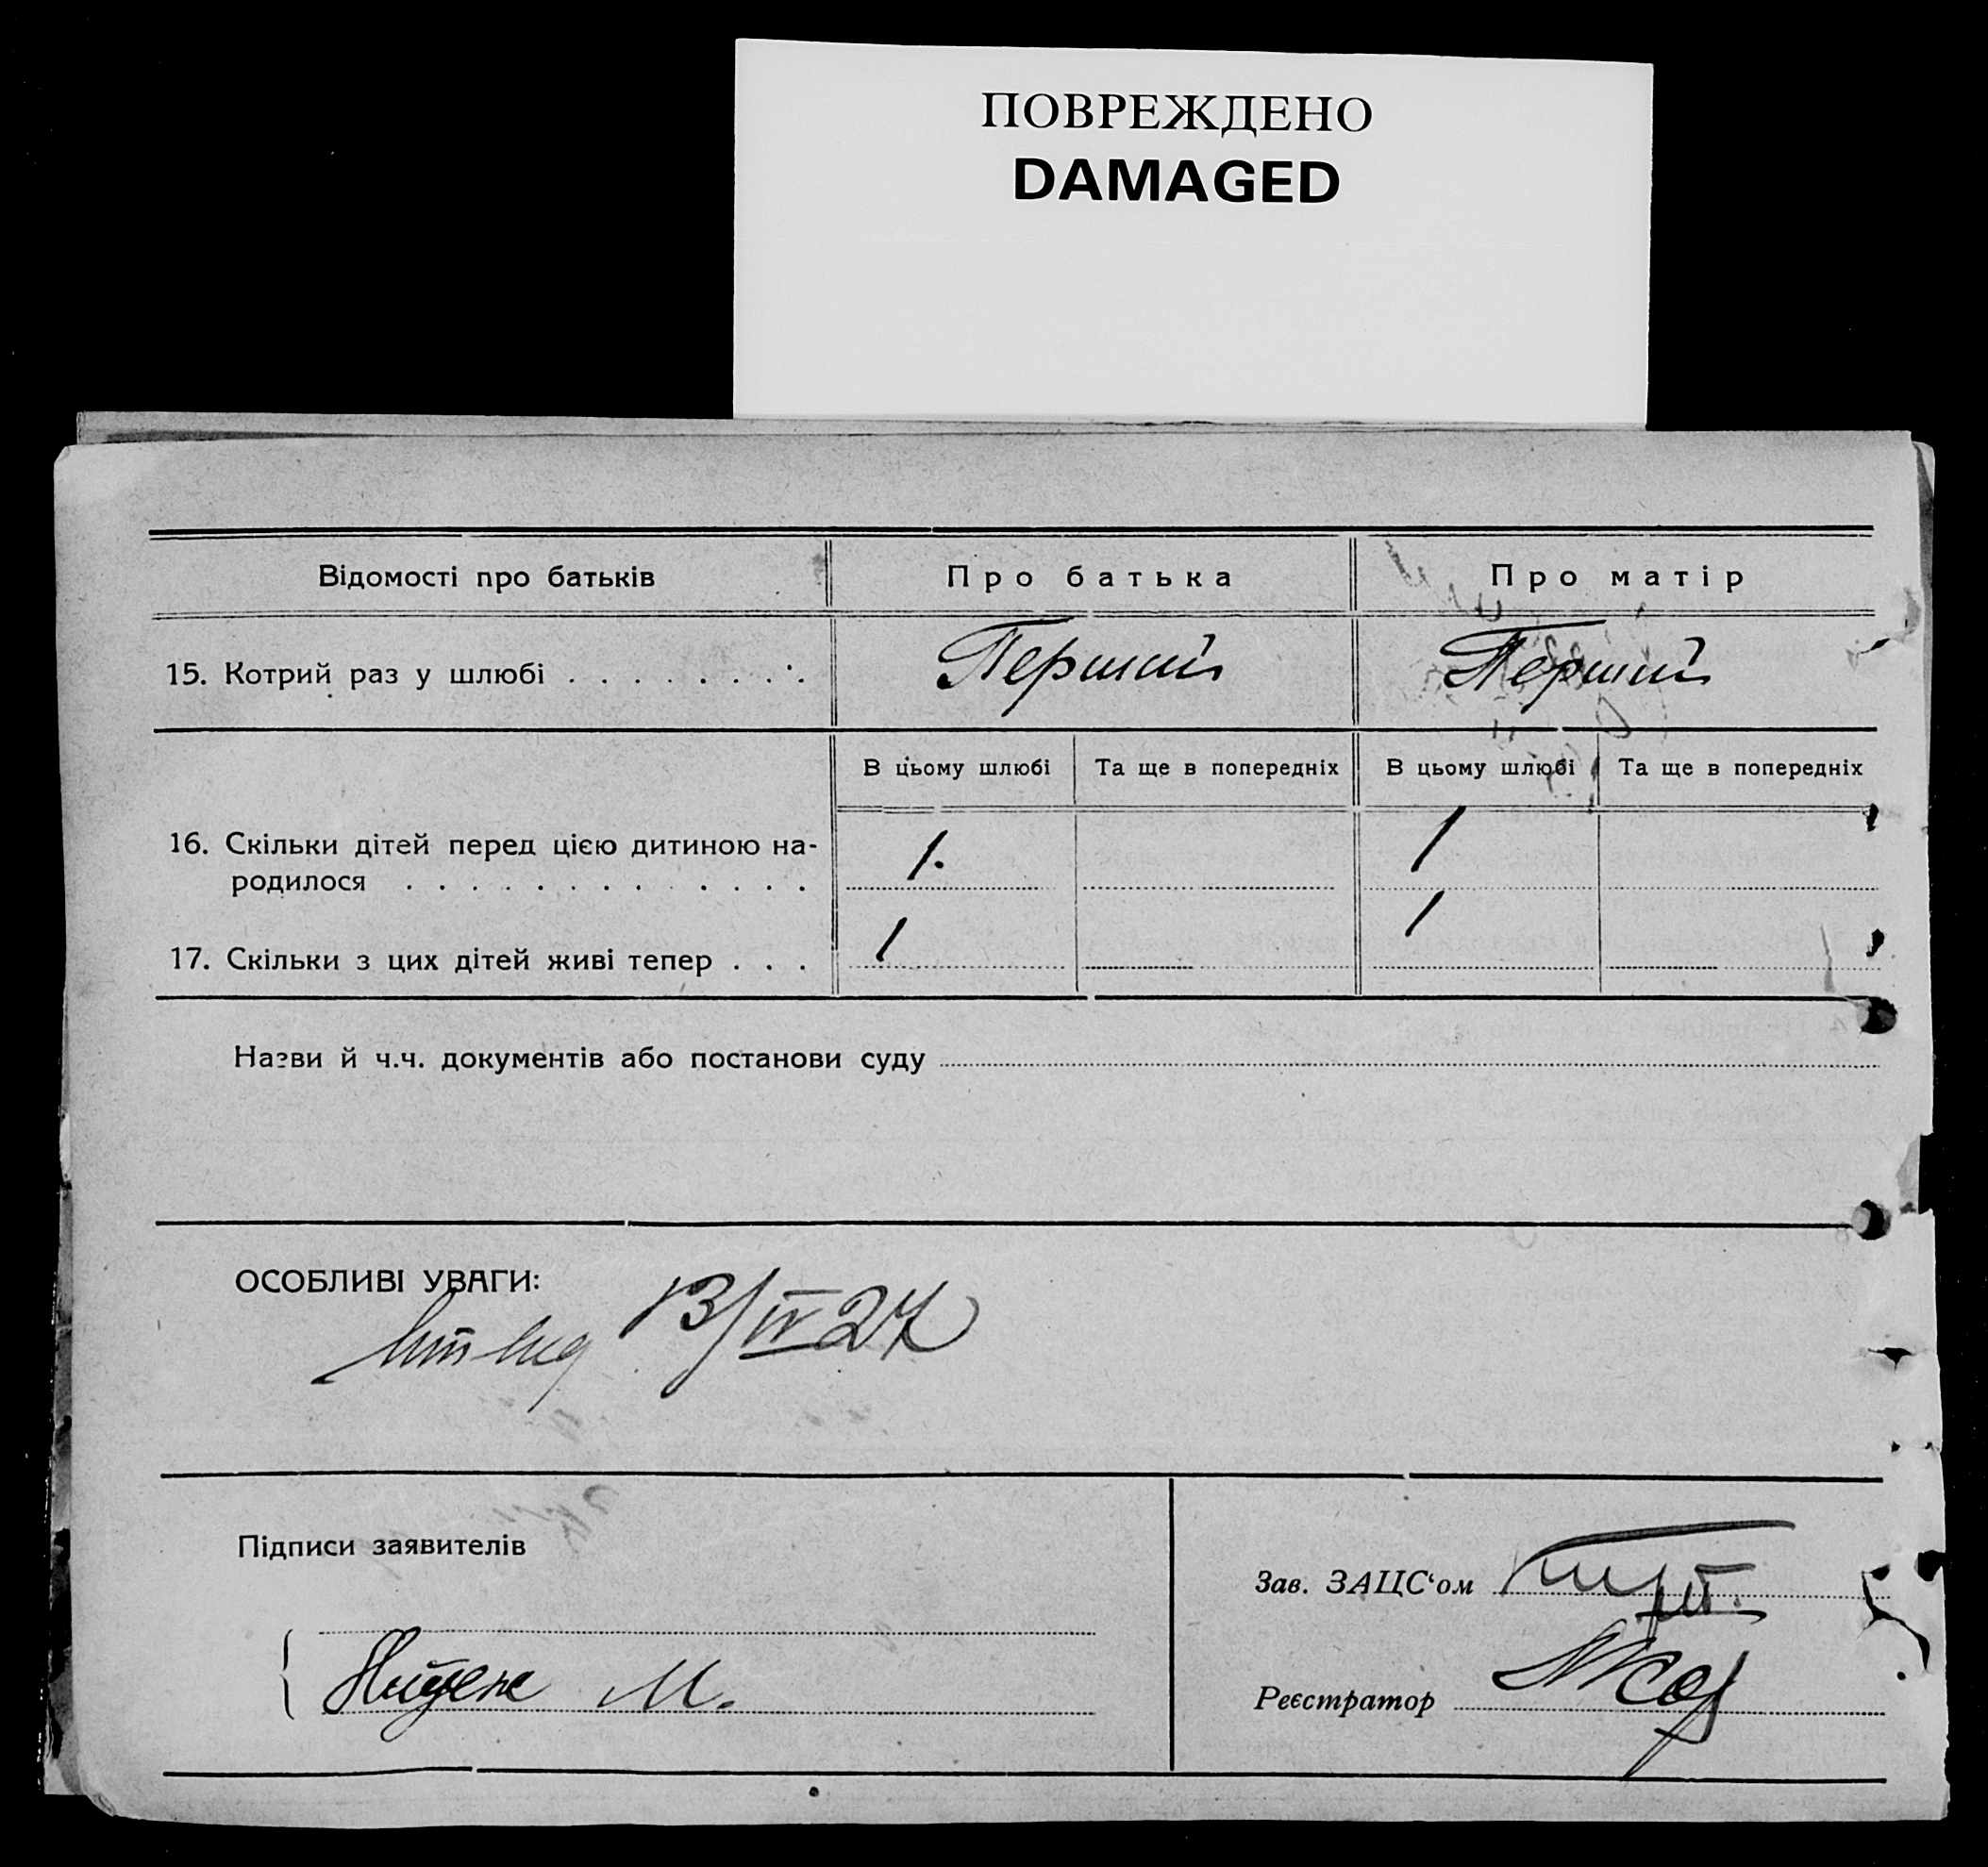 ПОВРЕЖДЕНО
DAMAGED
Відомості про батьків Про батька Про матір
15. Котрий раз у шлюбі . . . . . . . . Перший Перший
В цьому шлюбі Та ще в попередніх В цьому шлюбі Та ще в попередніх
16. Скільки дітей перед цією дитиною на-
родилося . . . . . . . . . . . . . 1. 1
17. Скільки з цих дітей живі тепер . . . 1 1
Назви й ч.ч. документів або постанови суду
ОСОБЛИВІ УВАГИ:
13/IV 27
Підписи заявителів
Зав. ЗАЦС‘ом
М.
Реєстратор